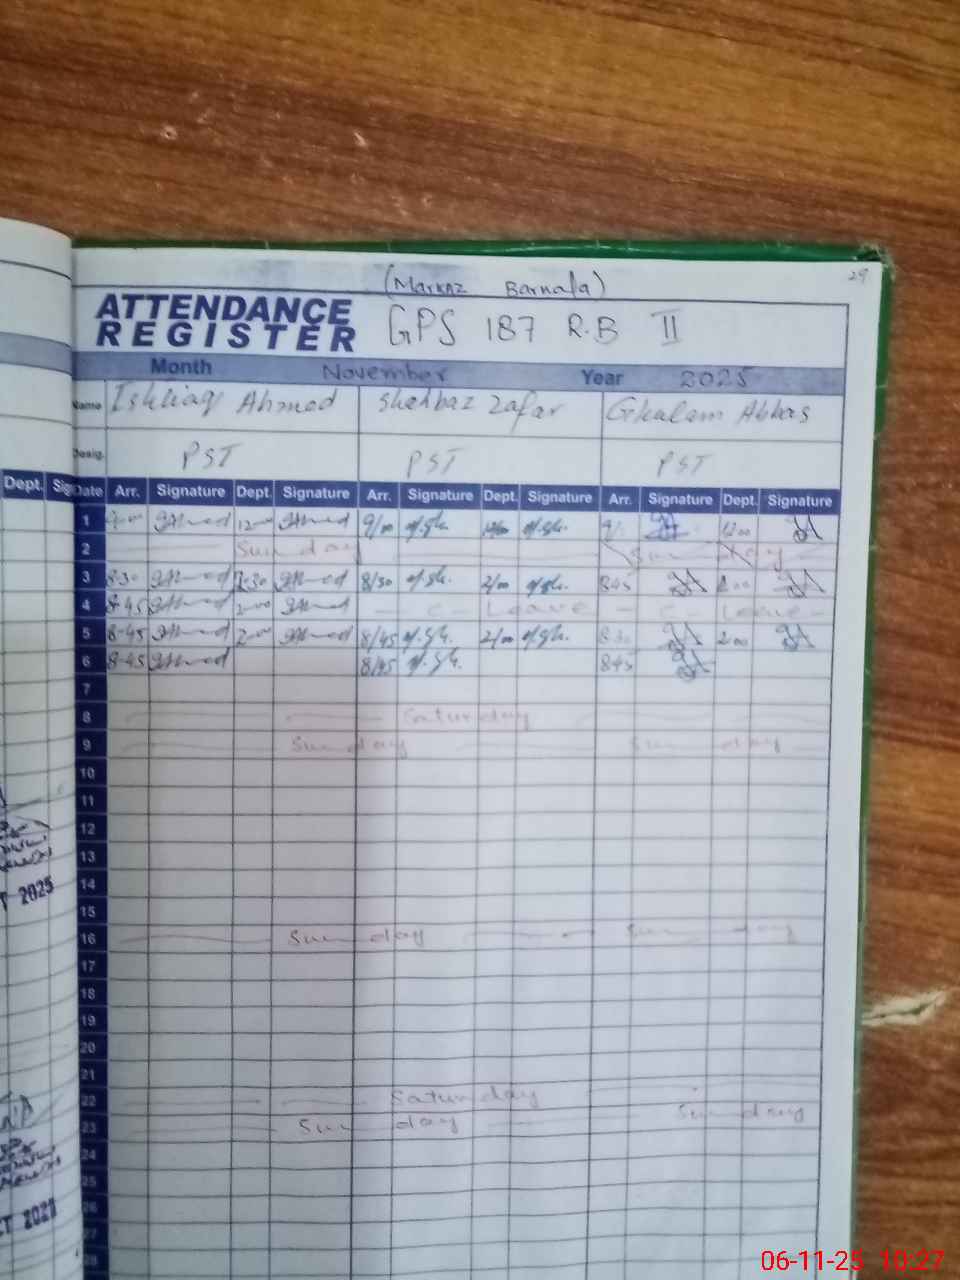 29
(Markaz Barnala)
ATTENDANCE
REGISTER
GPS 187 R.B II
Month November Year 2025
Name Ishtiaq Ahmad Shahbaz Zafar Ghulam Abbas
Desig. PST PST PST
Dept. Sig
Date Arr. Signature Dept. Signature Arr. Signature Dept. Signature Arr. Signature Dept. Signature
1 12-00 9/00 12/00 9/- 12-00
2 Sunday Sunday
3 8-30 8/30 2/00 8-45 2-00
4 8-45 2-00 - C- Leave - C- Leave -
5 8-45 2-00 8/45 2/00 8-30 2-00
6 8-45 8/45 8-45
7
8 Saturday
9 Sunday Sunday
10
11
12
13
14
15
16 Sunday Sunday
17
18
19
20
21
22 Saturday
23 Sunday Sunday
24
25
26
27
28
2025
06-11-25 10:27